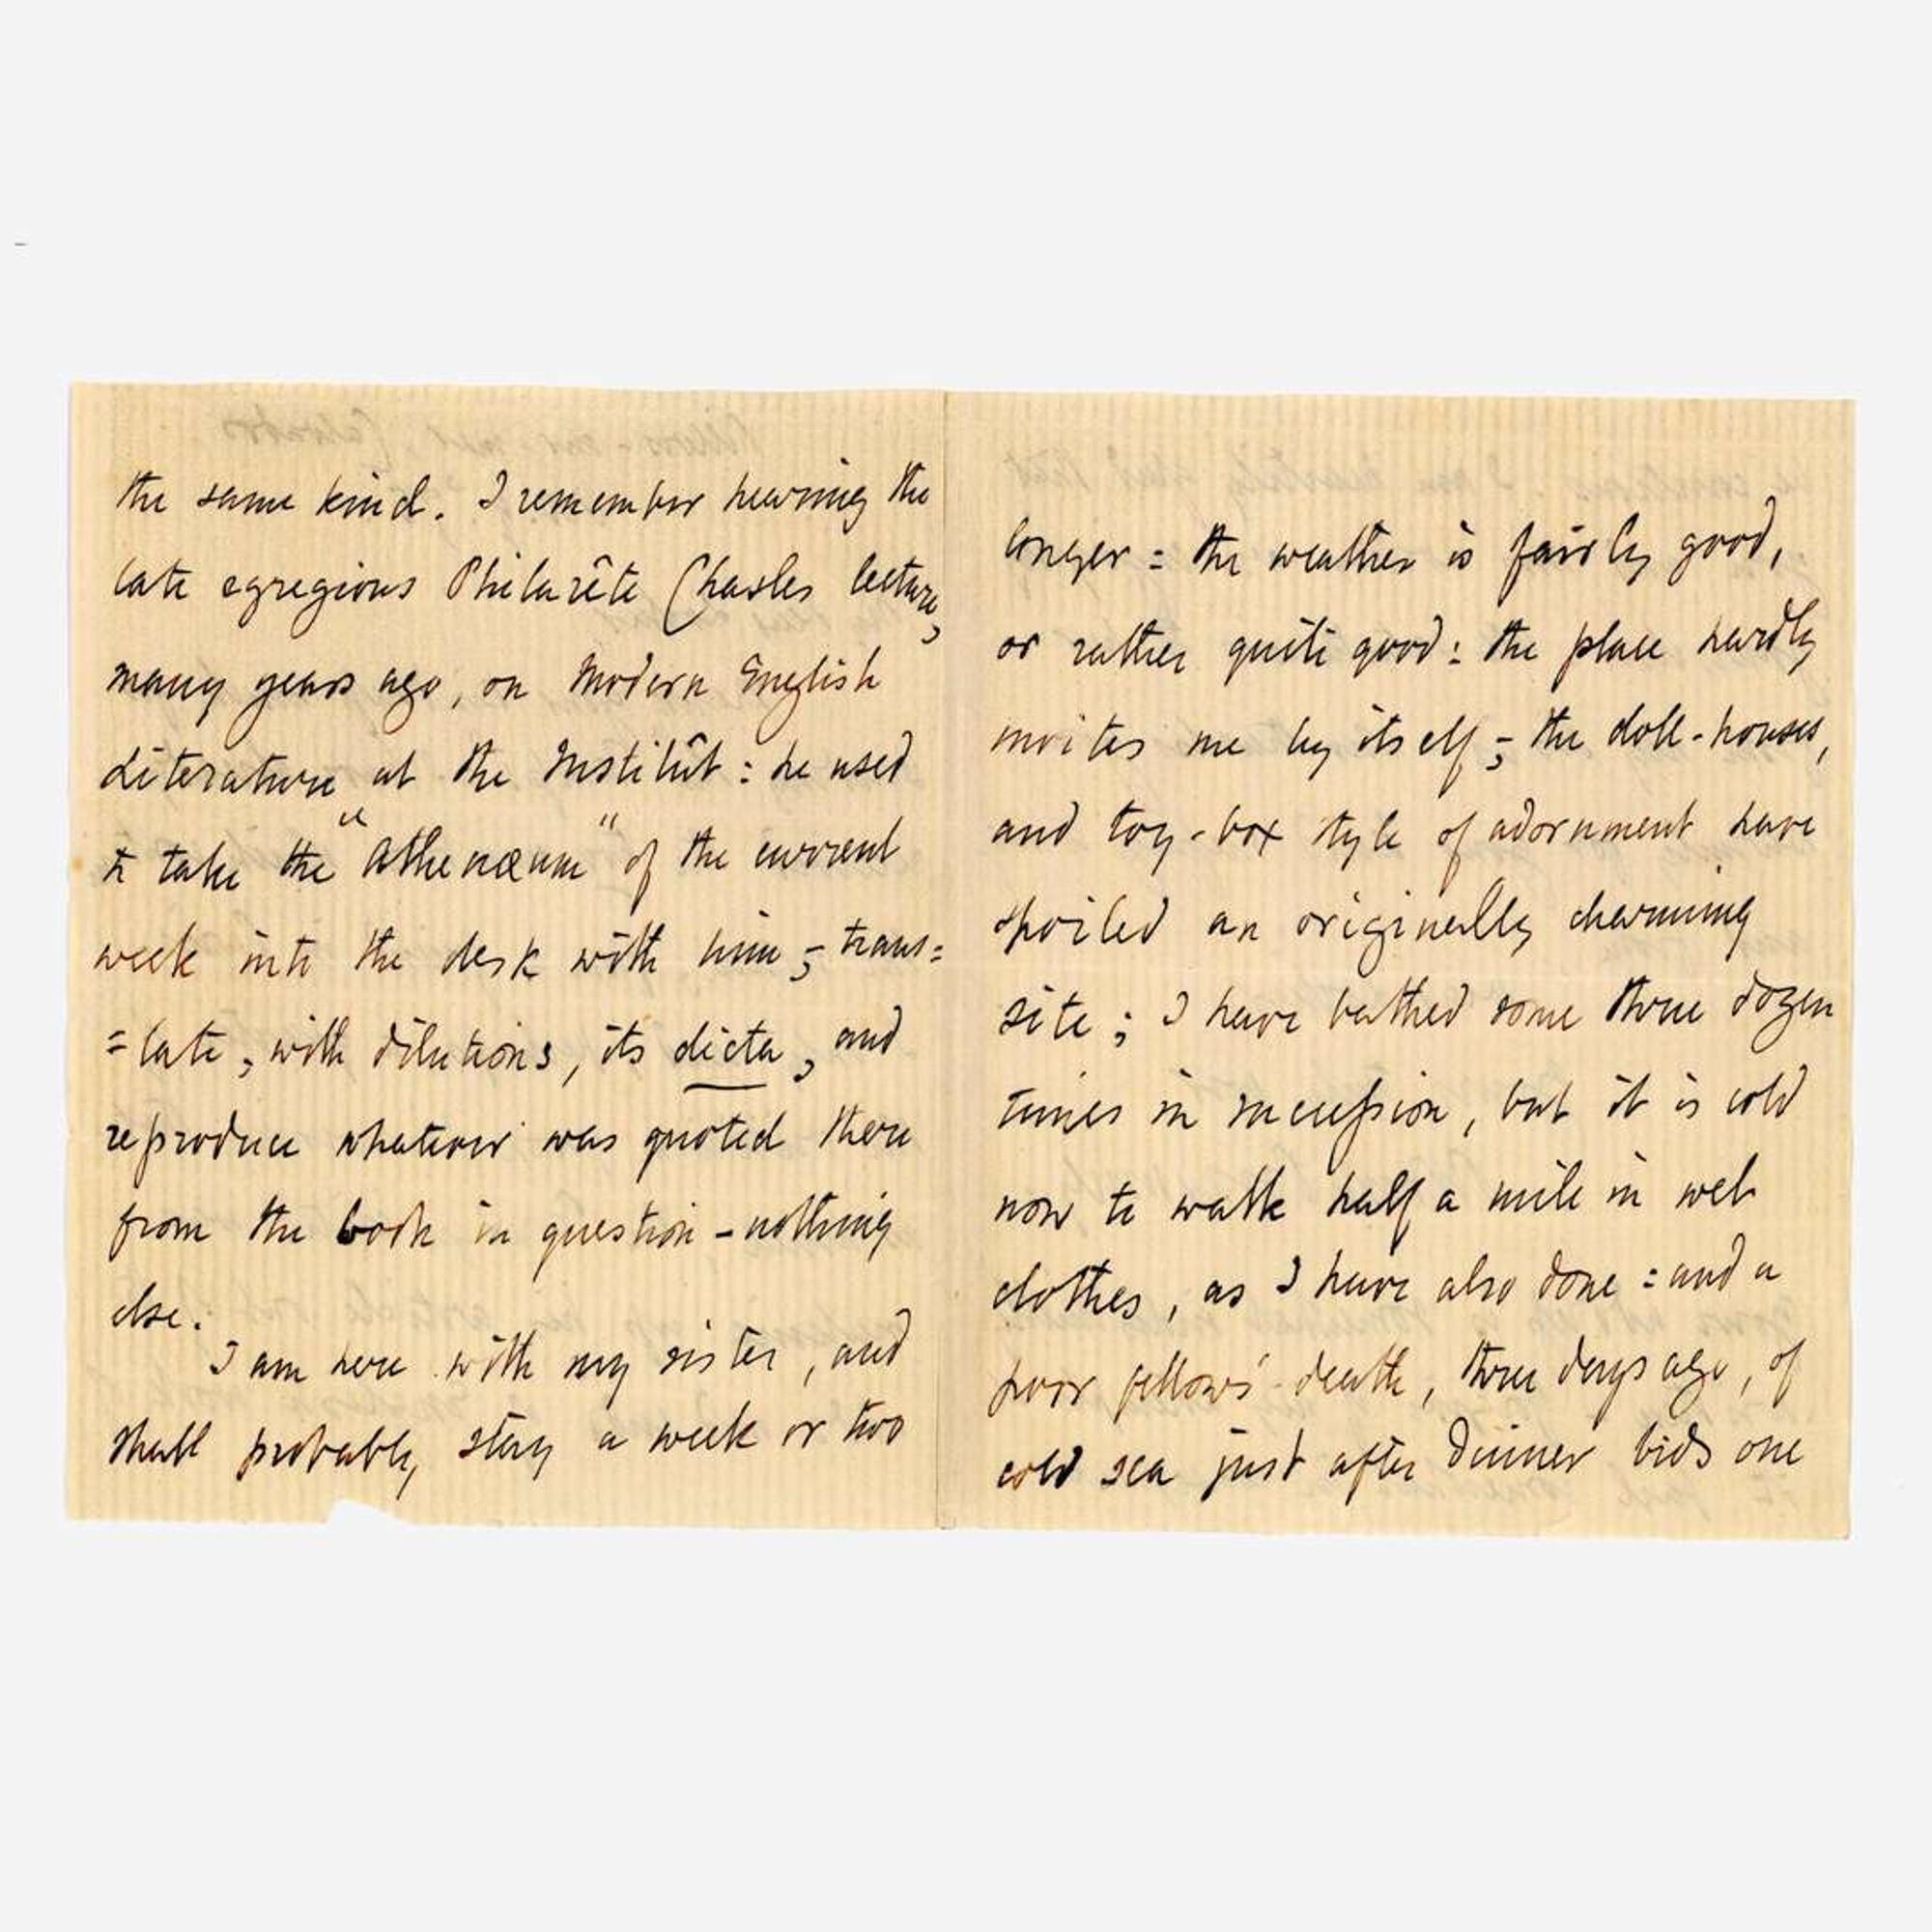 the same kind. I remember hearing the
late egregious Philarête Chasles lecture,
many years ago, on Modern English
Literature at the Institût: he used
to take the "Athenæum" of the current
week into the desk with him, trans=
=late, with dilutions, its dicta, and
reproduce whatever was quoted there
from the book in question – nothing
else.
I am here with my sister, and
shall probably stay a week or two
longer: the weather is fairly good,
or rather quite good: the place hardly
invites me by itself; the doll-houses,
and toy-box style of adornment have
spoiled an originally charming
site; I have bathed some three dozen
times in succession, but it is cold
now to walk half a mile in wet
clothes, as I have also done: and a
poor fellow's death, three days ago, of
cold sea just after dinner bids one